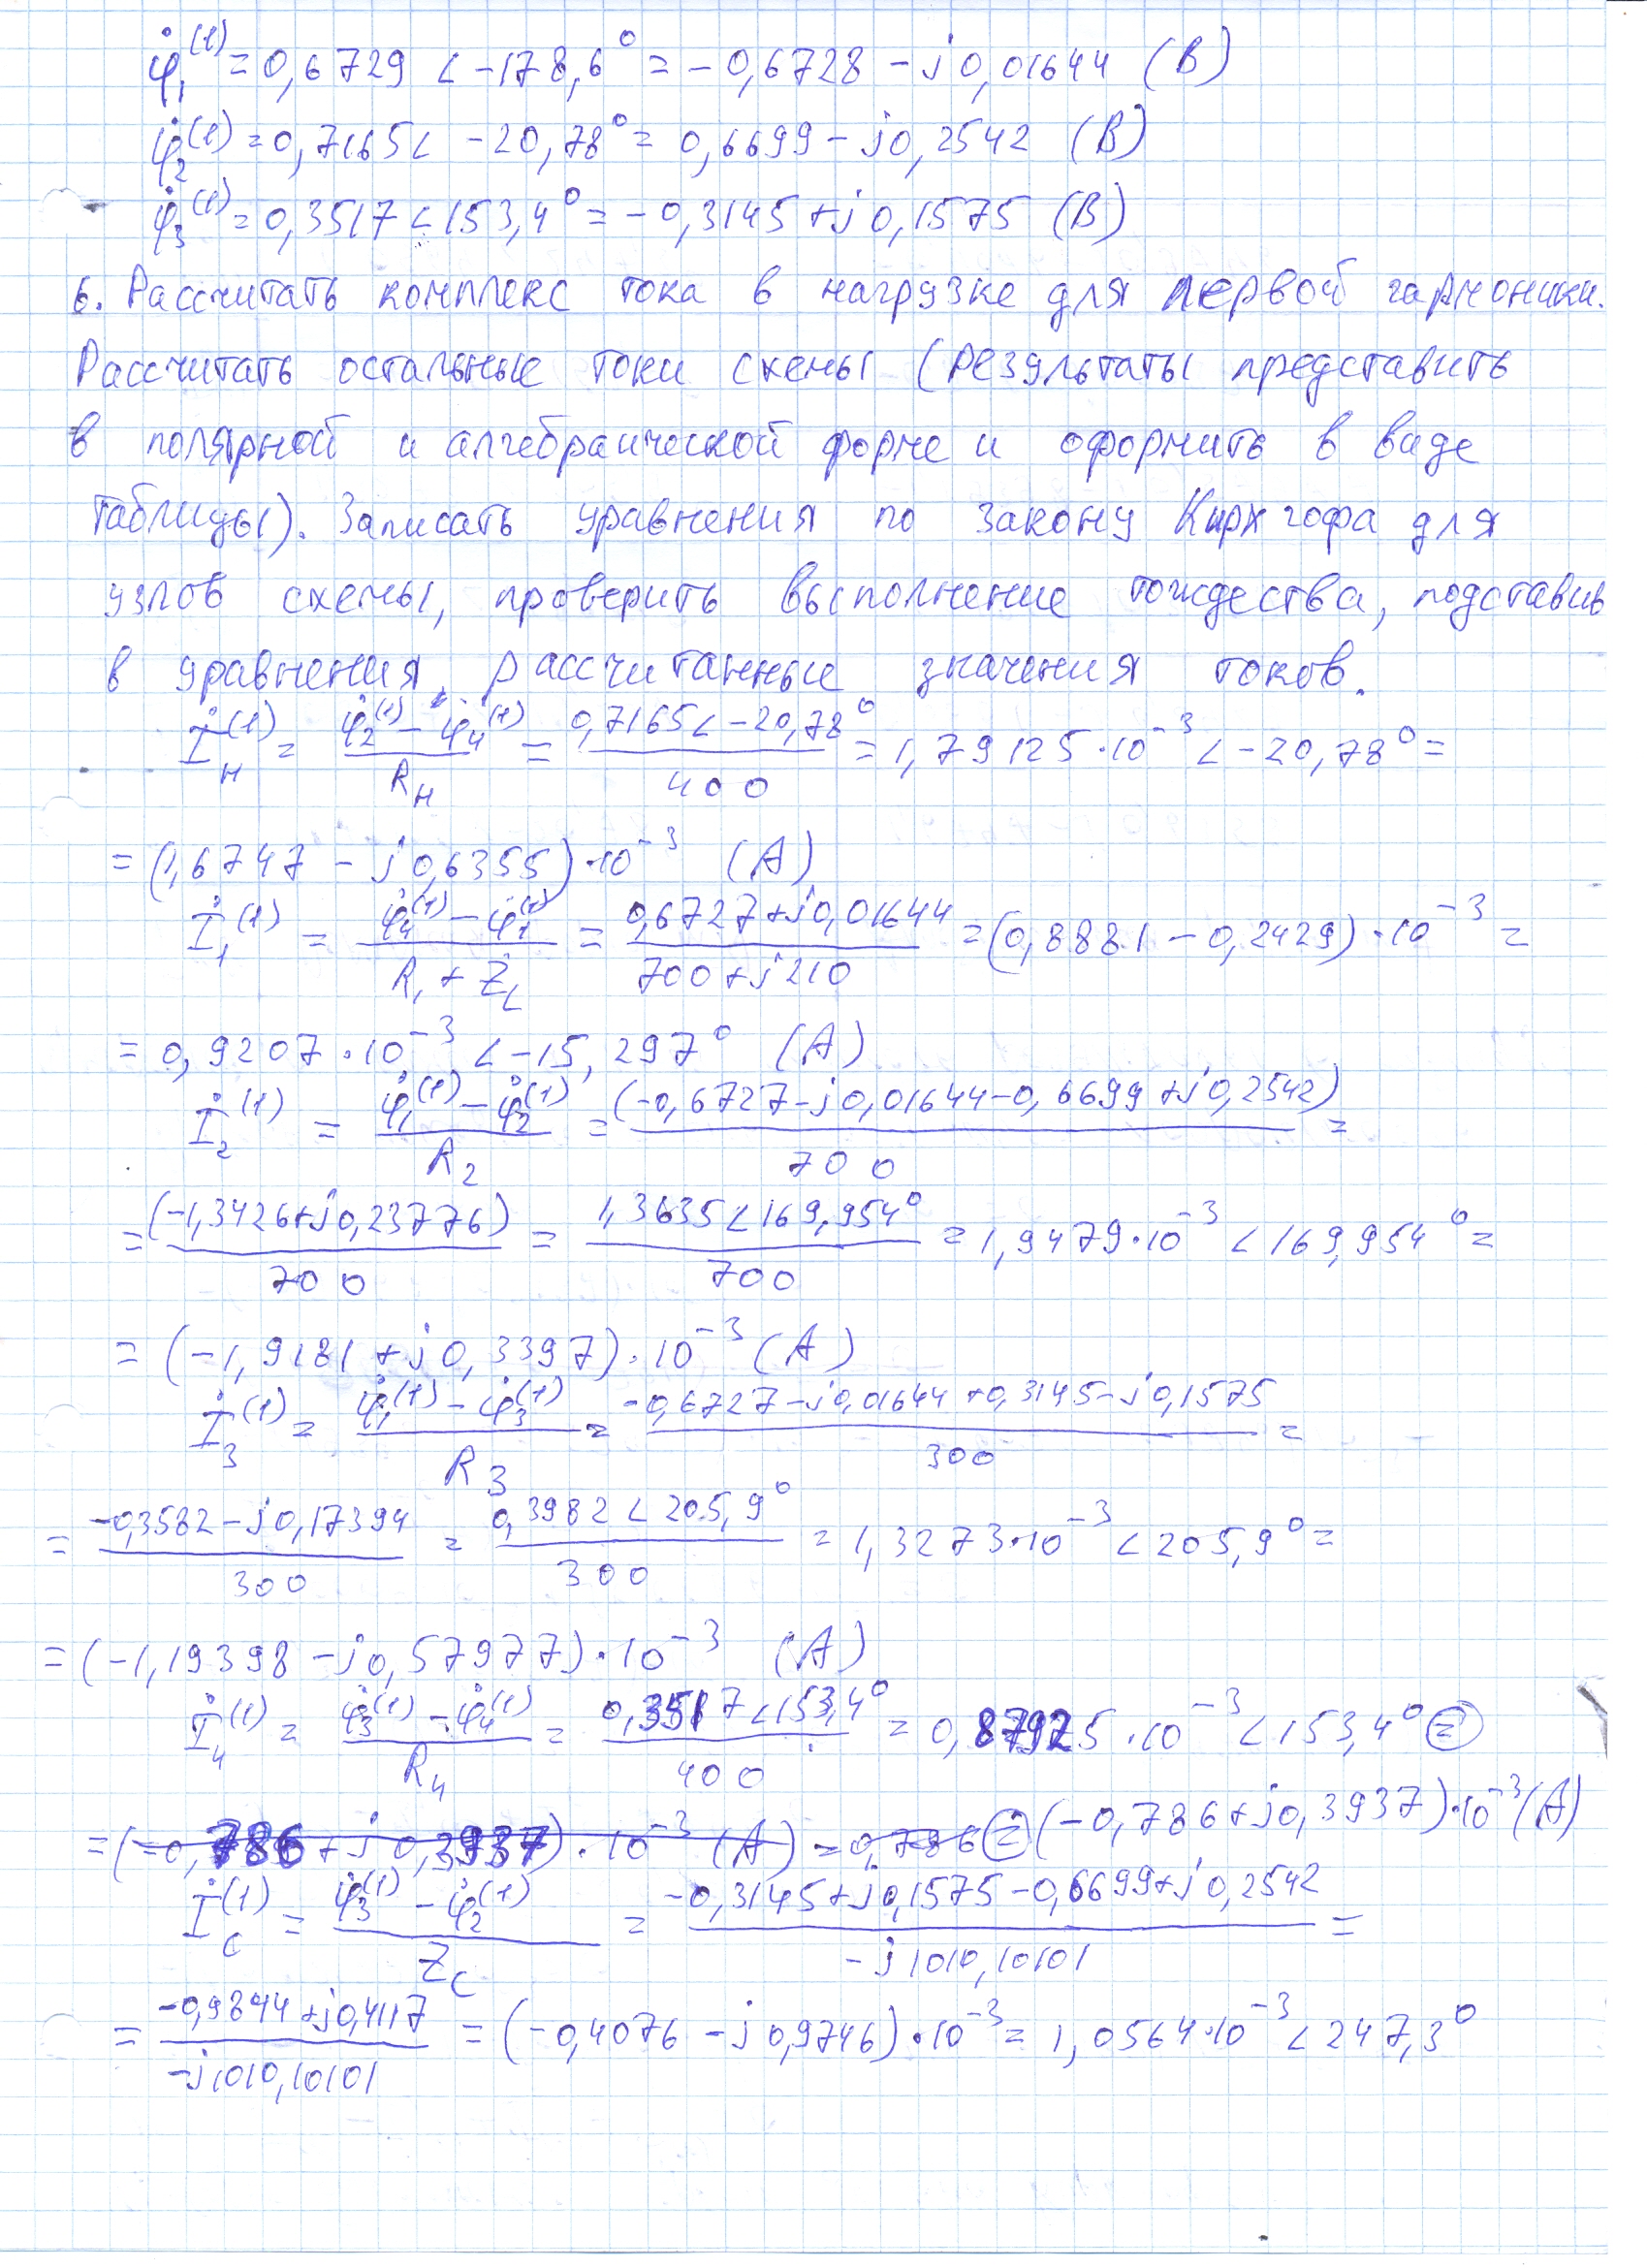 φ̇₁⁽¹⁾ = 0,6729 ∠ -178,6° = -0,6728 - j0,01644 (В)
φ̇₂⁽¹⁾ = 0,7165 ∠ -20,78° = 0,6699 - j0,2542 (В)
φ̇₃⁽¹⁾ = 0,3517 ∠ 153,4° = -0,3145 + j0,1575 (В)
6. Рассчитать комплекс тока в нагрузке для первой гармоники.
Рассчитать остальные токи схемы (результаты представить
в полярной и алгебраической форме и оформить в виде
таблицы). Записать уравнения по закону Кирхгофа для
узлов схемы, проверить выполнение тождества, подставив
в уравнения рассчитанные значения токов.
İ_Н⁽¹⁾ = (φ̇₂⁽¹⁾ - φ̇₄⁽¹⁾)/R_Н = (0,7165 ∠ -20,78°)/400 = 1,79125·10⁻³ ∠ -20,78° =
= (1,6747 - j0,6355)·10⁻³ (А)
İ₁⁽¹⁾ = (φ̇₄⁽¹⁾ - φ̇₁⁽¹⁾)/(R₁ + Z_L) = (0,6727 + j0,01644)/(700 + j210) = (0,8881 - 0,2429)·10⁻³ =
= 0,9207·10⁻³ ∠ -15,297° (А)
İ₂⁽¹⁾ = (φ̇₁⁽¹⁾ - φ̇₂⁽¹⁾)/R₂ = (-0,6727 - j0,01644 - 0,6699 + j0,2542)/700 =
= (-1,3426 + j0,23776)/700 = (1,3635 ∠ 169,954°)/700 = 1,9479·10⁻³ ∠ 169,954° =
= (-1,9181 + j0,3397)·10⁻³ (А)
İ₃⁽¹⁾ = (φ̇₁⁽¹⁾ - φ̇₃⁽¹⁾)/R₃ = (-0,6727 - j0,01644 + 0,3145 - j0,1575)/300 =
= (-0,3582 - j0,17394)/300 = (0,3982 ∠ 205,9°)/300 = 1,3273·10⁻³ ∠ 205,9° =
= (-1,19398 - j0,57977)·10⁻³ (А)
İ₄⁽¹⁾ = (φ̇₃⁽¹⁾ - φ̇₄⁽¹⁾)/R₄ = (0,3517 ∠ 153,4°)/400 = 0,87925·10⁻³ ∠ 153,4° =
= (-0,786 + j0,3937)·10⁻³ (А) = 0,786 = (-0,786 + j0,3937)·10⁻³ (А)
İ_C⁽¹⁾ = (φ̇₃⁽¹⁾ - φ̇₂⁽¹⁾)/Z_C = (-0,3145 + j0,1575 - 0,6699 + j0,2542)/(-j1010,10101) =
= (-0,9844 + j0,4117)/(-j1010,10101) = (-0,4076 - j0,9746)·10⁻³ = 1,0564·10⁻³ ∠ 247,3°